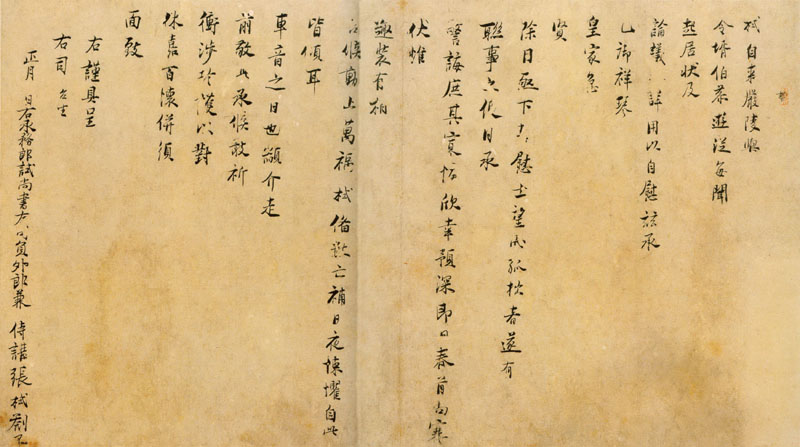 栻自来嚴陵與
令壻伯恭遊從每聞
起居狀及
論議之詳用以自慰茲承
已御祥琴
皇家急
賢
除目亟下士慰士望則孤杖者遂有
聯事六代日承
警誨庶其寡悔欣幸預深即日春首尚寒
伏惟
趣裝有相
台候動止萬福栻備數亡補日夜悚懼自此
皆傾耳
車音之日也顓介走
前敬此承候敢祈
衝涉珍護以對
休嘉百懷併須
面致
右謹具呈
右司
正月 日右承務郎試尚書左司員外郎兼 侍講張栻劄子